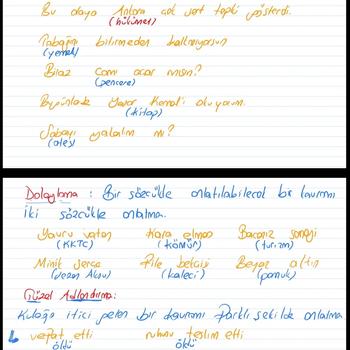 Bu olaya Ankara çok sert tepki gösterdi.
(hükümet)
Tabağını bitirmeden kalkmıyorsun
(yemek)
Biraz camı açar mısın?
(pencere)
Bugünlerde Yaşar Kemal'i okuyorum.
(kitap)
Sobayı yakalım mı?
(ateş)
Dolaylama : Bir sözcükle anlatılabilecek bir kavramı
iki sözcükle anlatma.
Yavru vatan Kara elmas Bacasız sanayi
(KKTC) (kömür) (turizm)
Minik serçe File bekçisi Beyaz altın
(Sezen Aksu) (kaleci) (pamuk)
Güzel Adlandırma:
Kulağa itici gelen bir kavramı farklı şekilde anlatma
vefat etti ruhunu teslim etti
öldü öldü